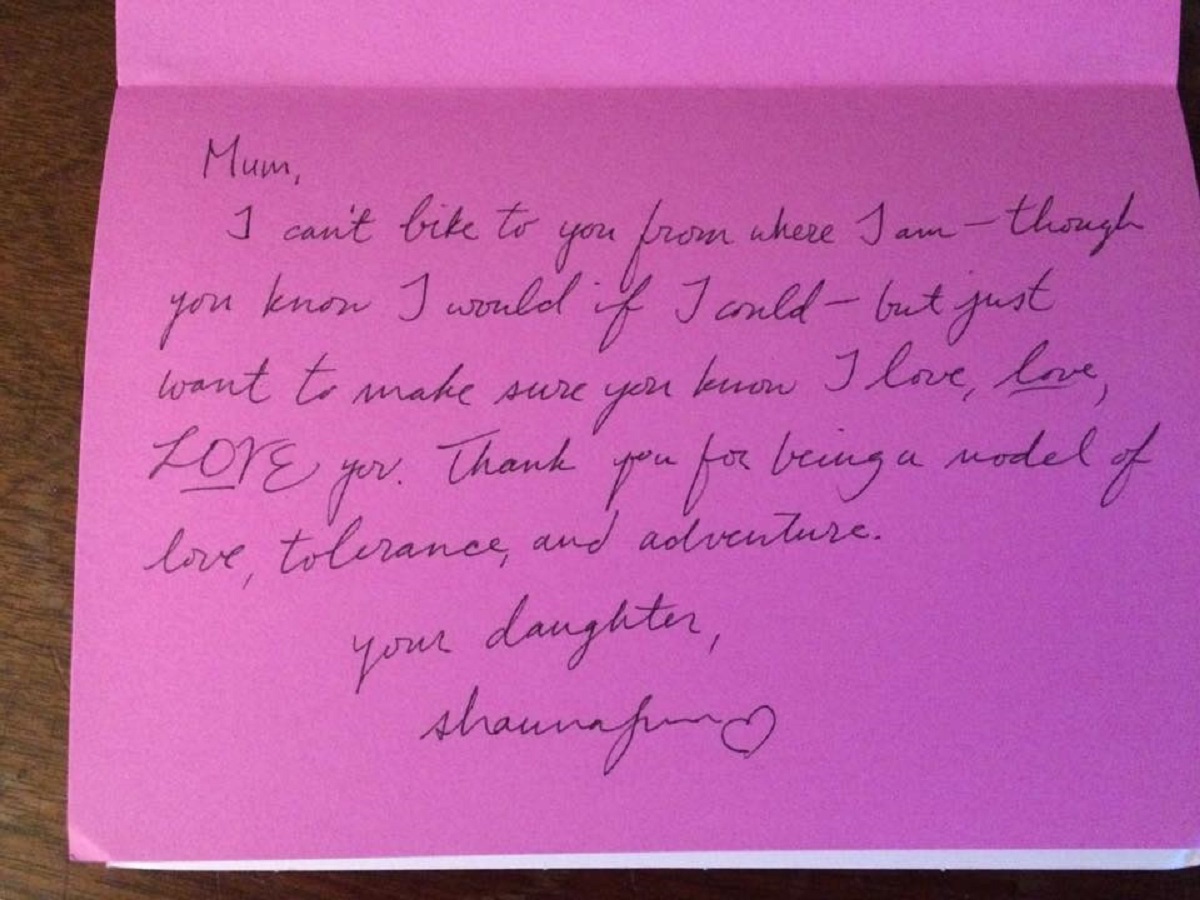 Mum,
I can't bike to you from where I am – though
you know I would if I could – but just
want to make sure you know I love, love,
LOVE you. Thank you for being a model of
love, tolerance, and adventure.
your daughter,